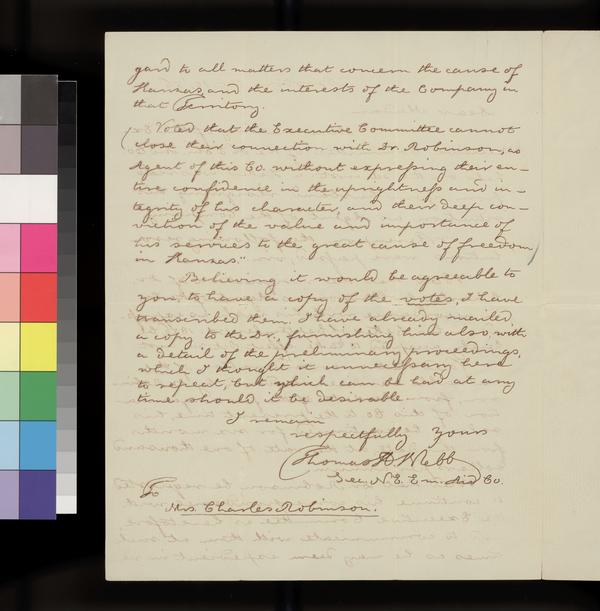 gard to all matters that concern the cause of
Kansas, and the interests of the Company in
that Territory.
Voted that the Executive Committee cannot
close their connection with Dr. Robinson, as
Agent of this Co. without expressing their en-
tire confidence in the uprightness and in-
tegrity of his character, and their deep con-
viction of the value and importance of
his services to the great cause of freedom
in Kansas."
Believing it would be agreeable to
you, to have a copy of the votes, I have
transcribed them. I have already mailed
a copy to the Dr. furnishing him also with
a detail of the preliminary proceedings,
which I thought it unnecessary here
to repeat, but which can be had at any
time should it be desirable.
I remain
respectfully yours
Thomas H. Webb
Sec. N. E. Em. Aid Co.
To
Mrs. Charles Robinson.